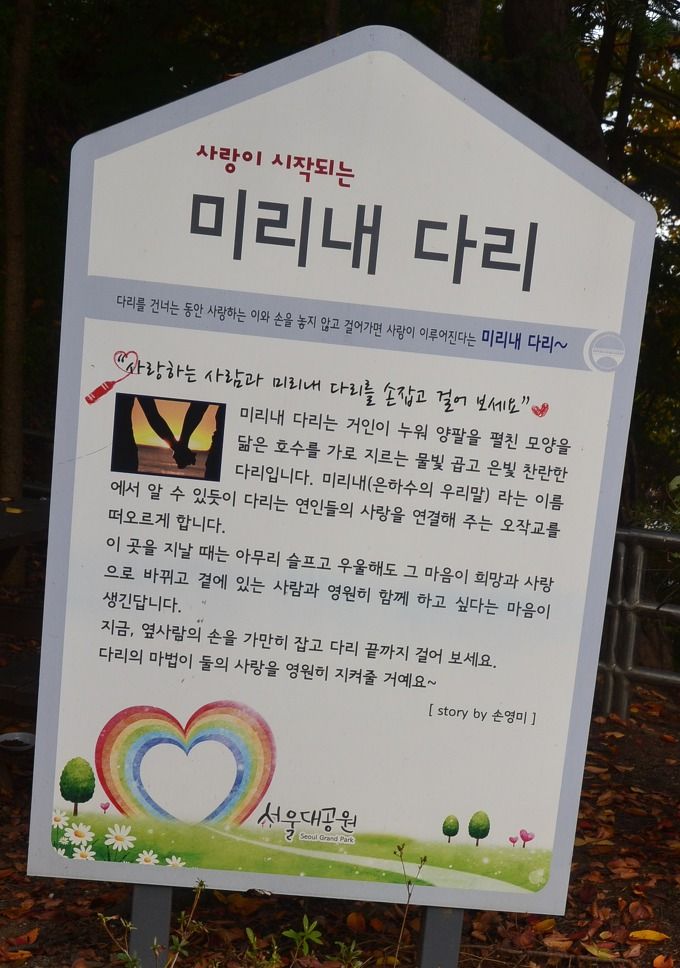 사랑이 시작되는
미리내 다리
다리를 건너는 동안 사랑하는 이와 손을 놓지 않고 걸어가면 사랑이 이루어진다는 미리내 다리~
"사랑하는 사람과 미리내 다리를 손잡고 걸어 보세요"
미리내 다리는 거인이 누워 양팔을 펼친 모양을
닮은 호수를 가로 지르는 물빛 곱고 은빛 찬란한
다리입니다. 미리내(은하수의 우리말) 라는 이름
에서 알 수 있듯이 다리는 연인들의 사랑을 연결해 주는 오작교를
떠오르게 합니다.
이 곳을 지날 때는 아무리 슬프고 우울해도 그 마음이 희망과 사랑
으로 바뀌고 곁에 있는 사람과 영원히 함께 하고 싶다는 마음이
생긴답니다.
지금, 옆사람의 손을 가만히 잡고 다리 끝까지 걸어 보세요.
다리의 마법이 둘의 사랑을 영원히 지켜줄 거예요~
[ story by 손영미 ]
서울대공원
Seoul Grand Park